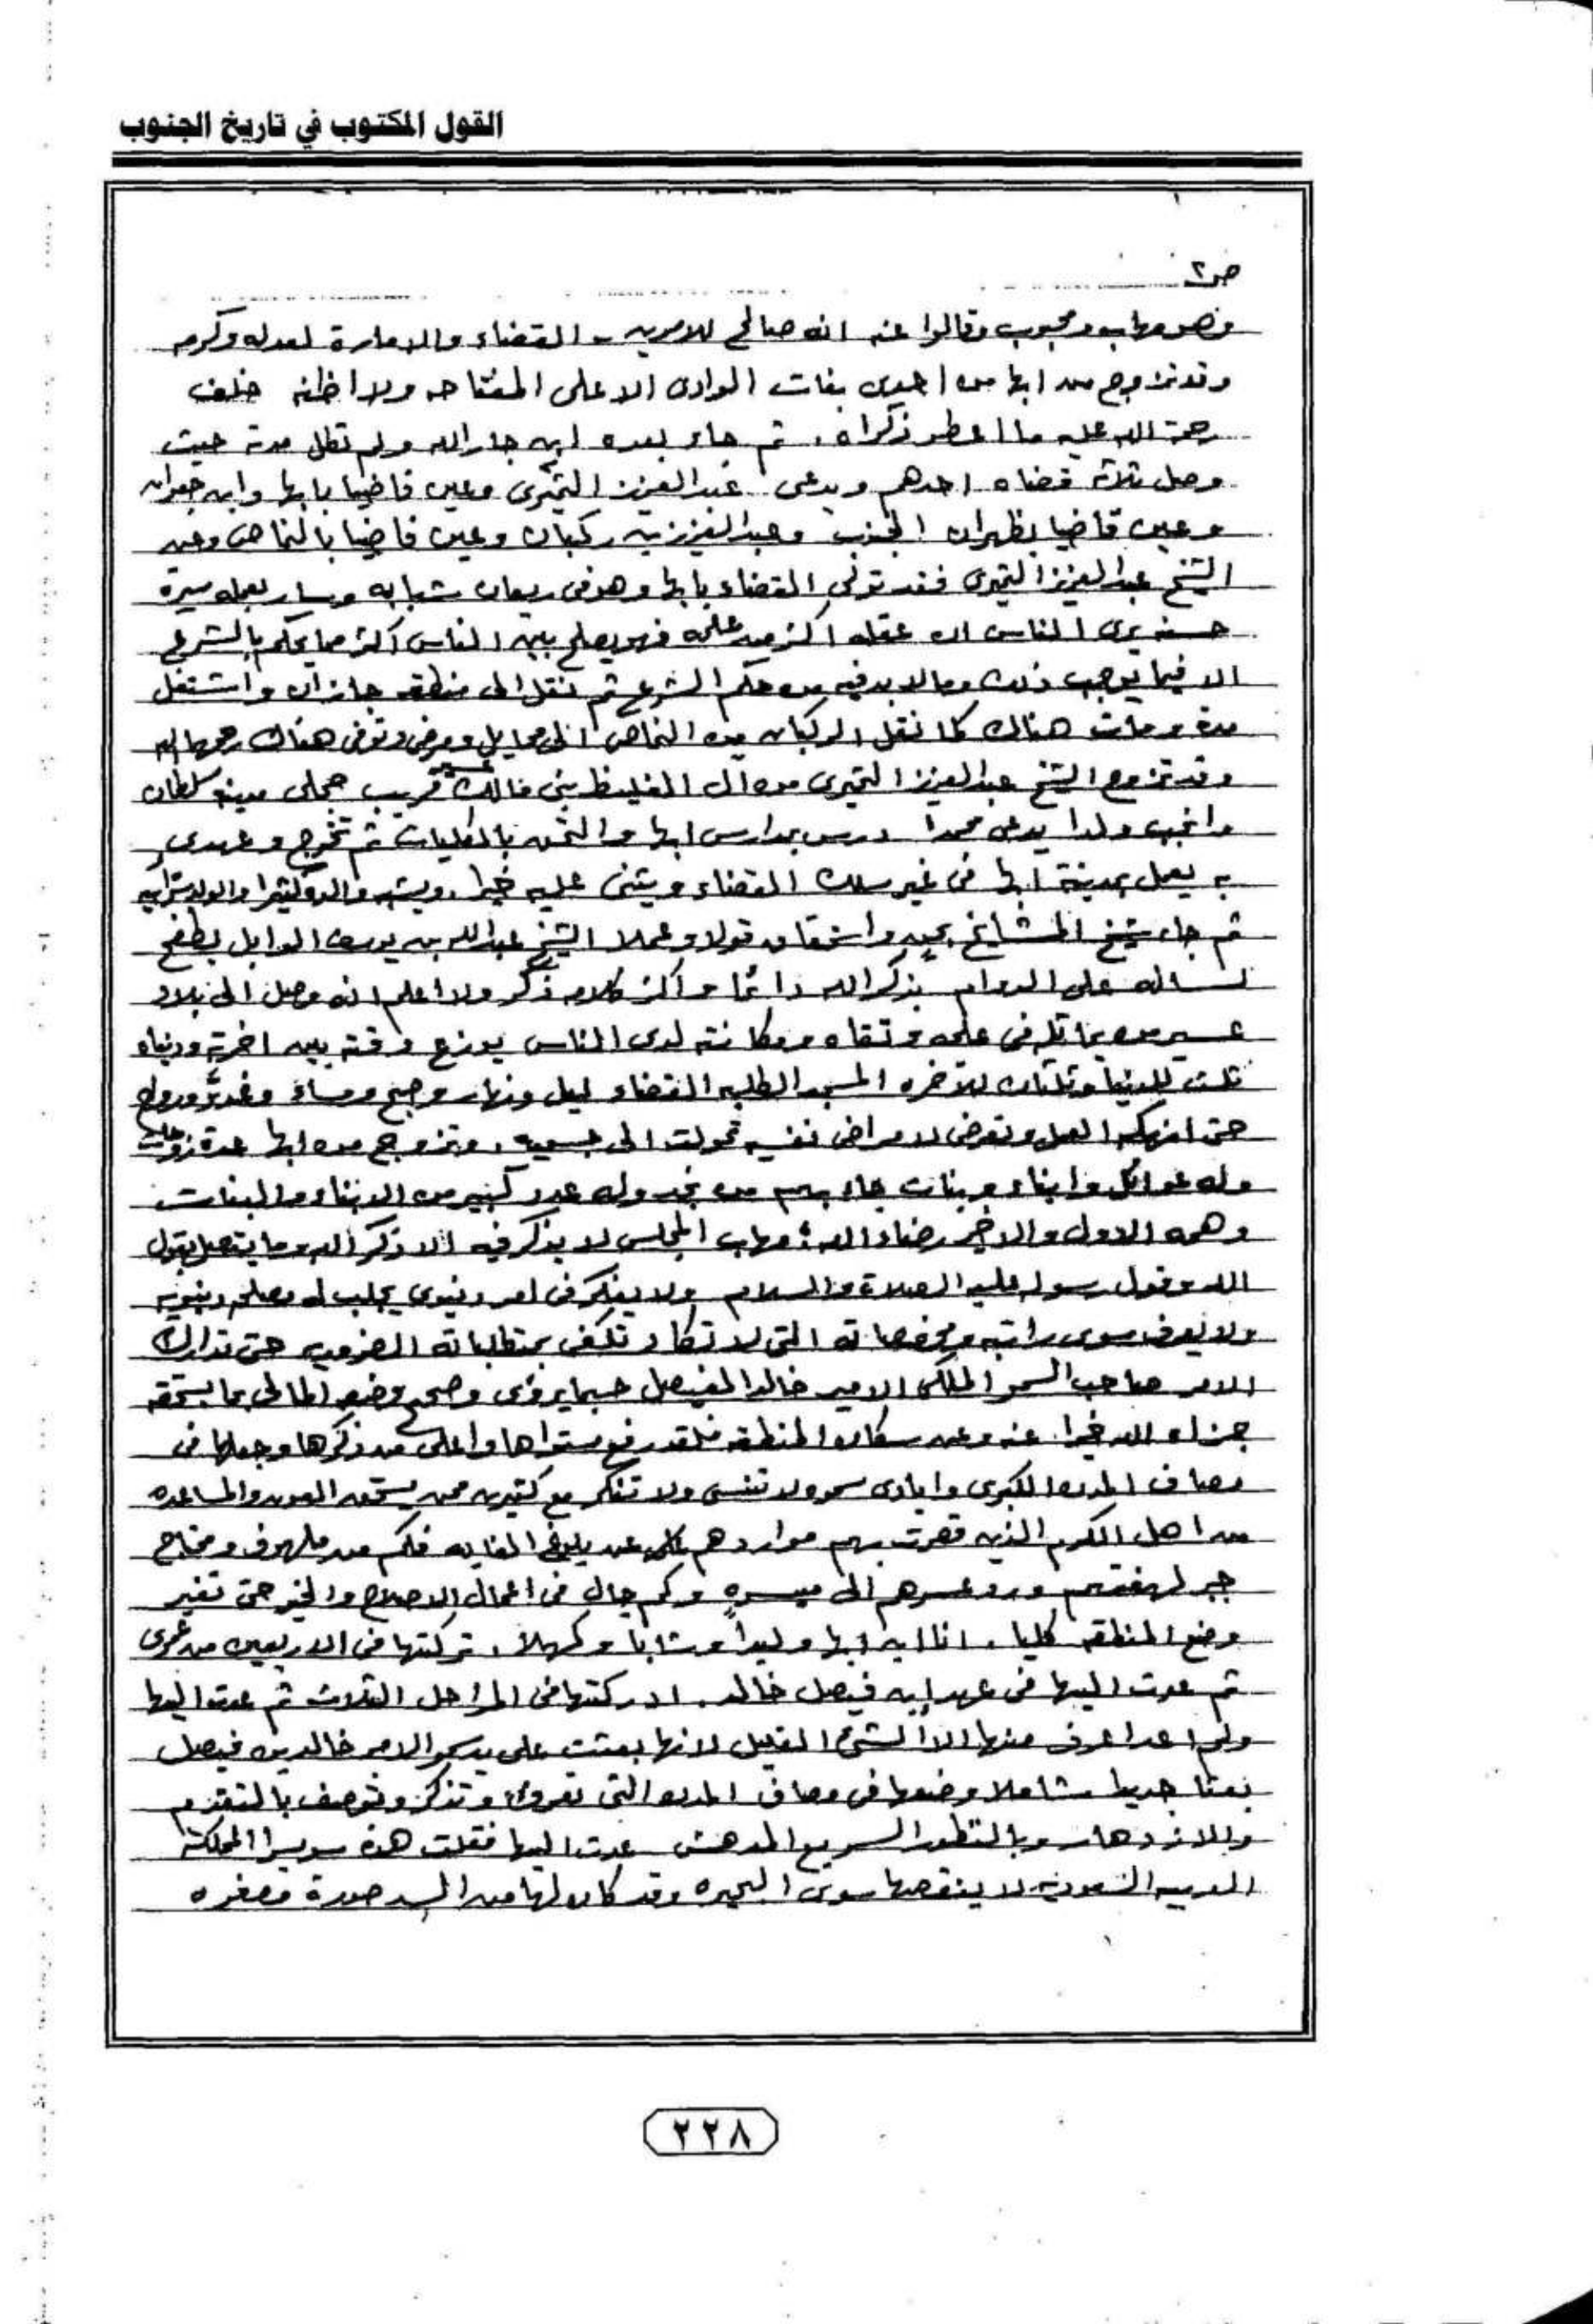 القول المكتوب في تاريخ الجنوب
ص٢
وهو مهاب ومحبوب وقالوا عنه انه صالح للامرين - القضاء والامارة لعدله وكرمه
وقد تزوج من ابها من احدى بنات الوادى الاعلى المفتاحه ولا اظنه خلف
رحمة الله عليه ما اعطر ذكراه. ثم جاء بعده ابن جار الله ولم تطل مدته حيث
وصل ثلاثة قضاه احدهم ويدعى عبدالعزيز التميرى وعين قاضيا بابها وابن جعوان
وعين قاضيا بظهران الجنوب وعبدالعزيز بن ركبان وعين قاضيا بالنماص وعن
الشيخ عبدالعزيز التميرى فقد تولى القضاء بابها وهو فى ريعان شبابه وسار بعمله سيرة
حسنه يرى الناس ان عقله اكثر من علمه فهو يصلح بين الناس اكثر مما يحكم بالشرع
الا فيما يوجب ذلك ومالا بد فيه من حكم الشرع ثم نقل الى منطقة جازان واشتغل
مدة ومات هناك كما نقل الركبان من النماص الى محايل ومرض وتوفى هناك رحمهما الله
وقد تزوج الشيخ عبدالعزيز التميرى من ال الغليظ بنى مالك عسير قريب محلى مدينة سلطان
وانجب ولدا يدعى محمدا درس بمدارس ابها والتحق بالكليات ثم تخرج وعهدى
به يعمل بمدينة ابها فى غير سلك القضاء ويثنى عليه خيرا. ويشبه والده كثيرا والولد سر ابيه
ثم جاء شيخ المشايخ بحق واستحقاق قولا وعملا الشيخ عبدالله بن يوسف الوابل يطفح
لسانه على الدوام بذكر الله دائما واكثر كلامه ذكر ولا اعلم انه وصل الى بلاد
عسير من يماثله فى علمه وتقاه ومكانته لدى الناس يوزع وقته بين اخرته ودنياه
ثلث للدنيا وثلثان للآخره المسجد الطلبه القضاء ليل ونهار وصبح ومساء وغدو ورواح
حتى انهكه العمل وتعرض لامراض نفسيه تحولت الى جسميه. وتزوج من ابها عدة زوجات
وله عوائل وابناء وبنات جاء بهم من نجد وله عدد كبير من الابناء والبنات
وهمه الاول والاخير رضاء الله، مهاب المجلس لا يذكر فيه الا ذكر الله وما يتصل بقول
الله وقول رسوله عليه الصلاة والسلام ولا يفكر فى امر دنيوى يجلب له مصلحه دنيويه
ولا يعرف سوى راتبه ومخصصاته التى لا تكاد تكفى بمتطلباته الضروريه حتى تدارك
الامر صاحب السمو الملكى الامير خالد الفيصل حسبما يروى وصحح وضعه المالى بما يستحقه
جزاه الله خيرا عنه وعن سكان المنطقه فلقد رفع مستواها واعلى من ذكرها وجعلها فى
مصاف المدن الكبرى وايادى سموه لا تنسى ولا تنكر مع كثيرين ممن يستحق العون والمساعده
من اهل الكرم الذين قصرت بهم مواردهم عن بلوغ الغايه فكم من ملهوف ومحتاج
جبر لهفتهم ورد عسرهم الى ميسرةٍ وكم جال فى اعمال الاصلاح والخير حتى تغير
وضع المنطقه كليا. انا ابن ابها وليداً وشابا وكهلا. تركتها فى الاربعين من عمرى
ثم عدت اليها فى عهد ابن فيصل خالد. ادركتها فى المراحل الثلاث ثم عدت اليها
ولم اعد اعرف منها الا الشئ القليل لانها بعثت على يد سمو الامير خالد بن فيصل
بعثا جديدا شاملا وضعها فى مصاف المدن التى تعرف وتذكر وتوصف بالتقدم
والازدهار وبالتطور السريع المدهش عدت اليها فقلت هذه سويسرا المملكة
العربيه السعوديه لا ينقصها سوى البحيره وقد كان لها من السد صورة مصغره
٢٢٨